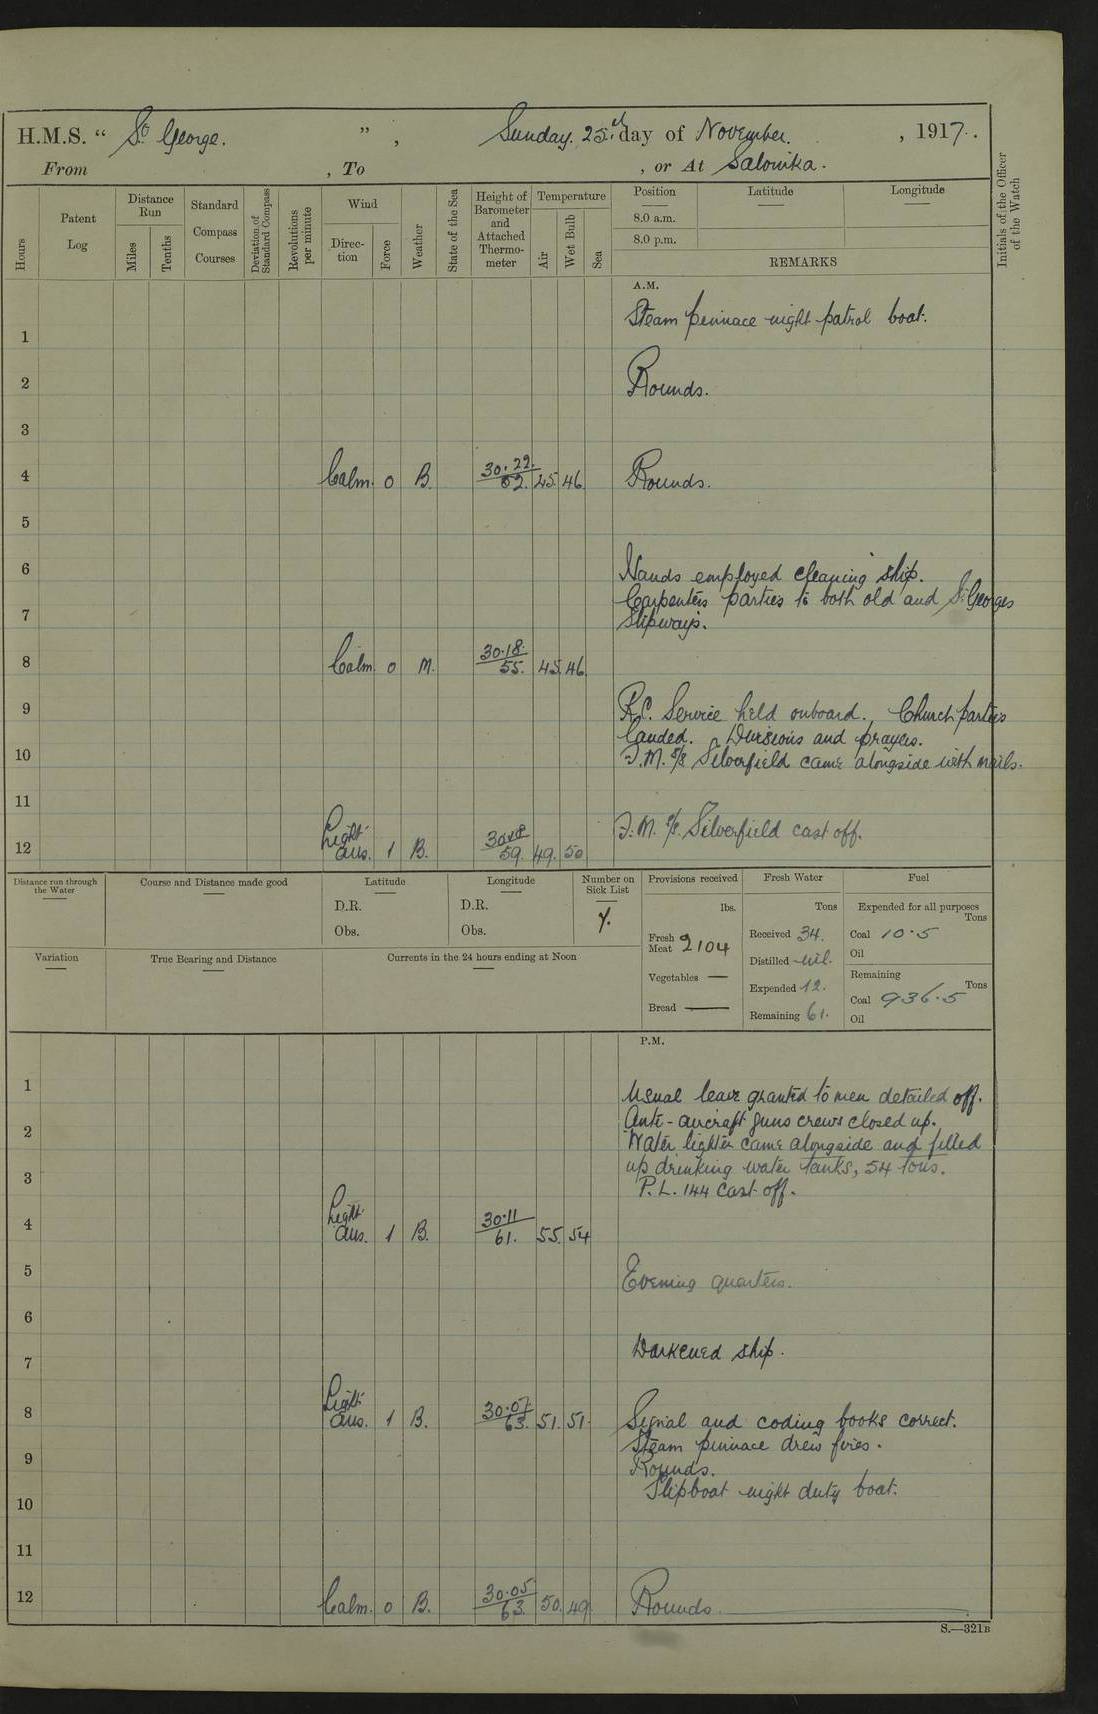 H.M.S. " St George. ", Sunday. 25th day of November. , 1917.
From , To , or At Salonika.
Hours
Patent Log
Distance Run
Miles
Tenths
Standard Compass Courses
Deviation of Standard Compass
Revolutions per minute
Wind
Direc- tion
Force
Weather
State of the Sea
Height of Barometer and Attached Thermo- meter
Temperature
Air
Wet Bulb
Sea
Position
Latitude
Longitude
8.0 a.m.
8.0 p.m.
REMARKS
Initials of the Officer of the Watch
A.M.
Steam pinnace night patrol boat.
1
2 Rounds.
3
4 Calm. 0 B. 30.22. 45. 46 Rounds.
5
6 Hands employed cleaning ship.
Carpenters parties to both old and St Georges
7 Slipways.
8 Calm. 0 M. 30.18. 55. 45. 46.
9 R.C. Service held onboard. Church parties
landed. Divisions and prayers.
10 F.M. S/S Silverfield came alongside with mails.
11
12 Light Aus. 1 B. 59. 49. 50 F.M. S/S. Silverfield cast off.
Distance run through the Water
Course and Distance made good
Latitude
D.R.
Obs.
Longitude
D.R.
Obs.
Number on Sick List
7.
Provisions received
lbs.
Fresh Meat 2104
Vegetables —
Bread —
Fresh Water
Tons
Received 34.
Distilled nil.
Expended 12.
Remaining 61.
Fuel
Expended for all purposes
Tons
Coal 10.5
Oil
Remaining
Tons
Coal 936.5
Oil
Variation
True Bearing and Distance
Currents in the 24 hours ending at Noon
P.M.
1 Usual leave granted to men detailed off.
Anti-aircraft guns crews closed up.
2 Water lighter came alongside and filled
up drinking water tanks, 54 tons.
3 P.L. 144 cast off.
4 Light Aus. 1 B. 30.11 61. 55. 54
5 Evening quarters.
6
7 Darkened ship.
8 Light Aus. 1 B. 30.07 63. 51. 51. Signal and coding books correct.
Steam pinnace drew fires.
9 Rounds.
10 Slipboat night duty boat.
11
12 Calm. 0 B. 30.05 63. 50. 49. Rounds
S.—321B